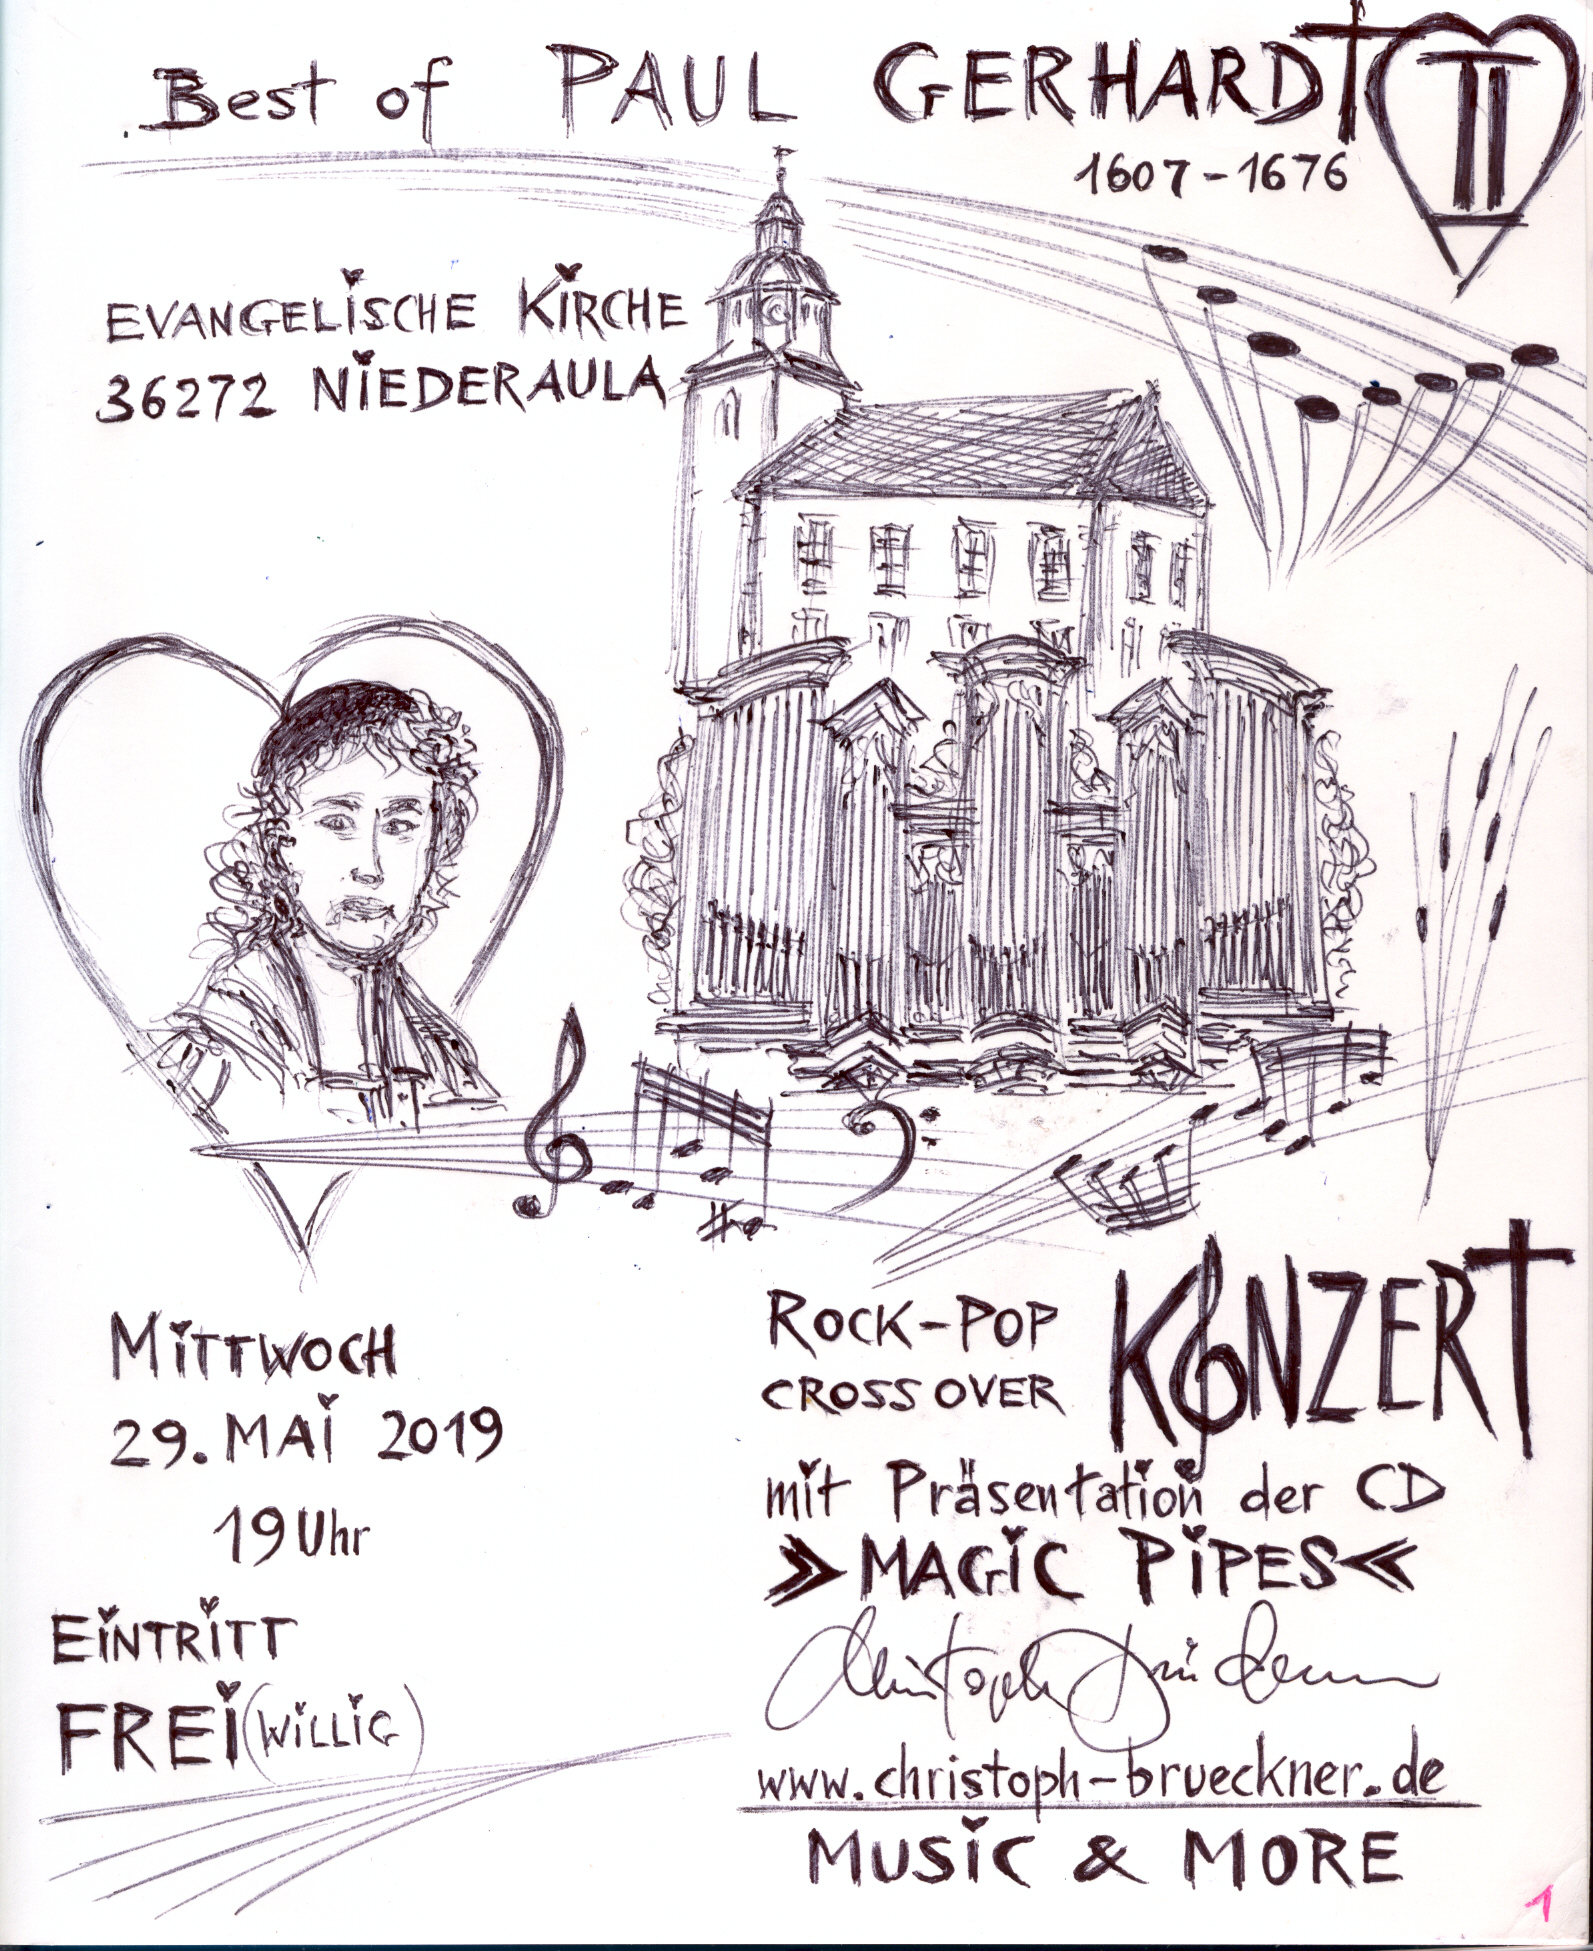 Best of PAUL GERHARDT II
1607-1676
EVANGELISCHE KIRCHE
36272 NIEDERAULA
MITTWOCH
29. MAI 2019
19 Uhr
EINTRITT
FREI (WILLIG)
ROCK-POP
CROSSOVER
KONZERT
mit Präsentation der CD
»MAGIC PIPES«
Christoph Brückner
www.christoph-brueckner.de
MUSIC & MORE
1